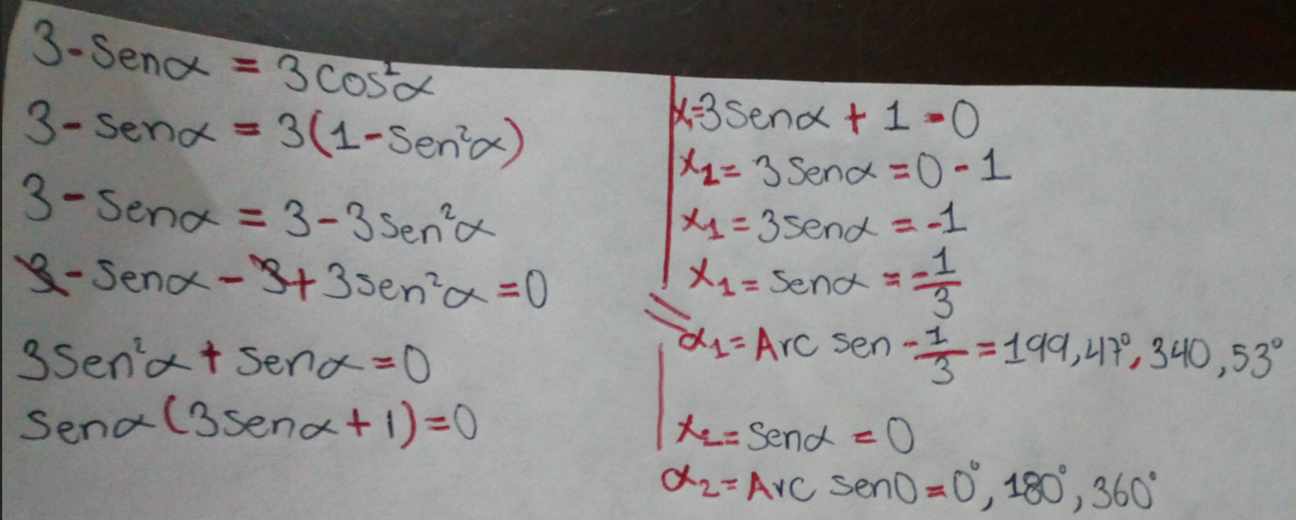 3-Senα = 3cos²α
3-senα = 3(1-Sen²α)
3-senα = 3-3sen²α
3-senα-3+3sen²α=0
3sen²α+senα=0
senα(3senα+1)=0
x=3senα+1=0
x₁=3senα=0-1
x₁=3senα=-1
x₁=senα=-1/3
α₁=Arc sen -1/3=199,47°,340,53°
x₂=senα=0
α₂=Arc sen0=0°,180°,360°